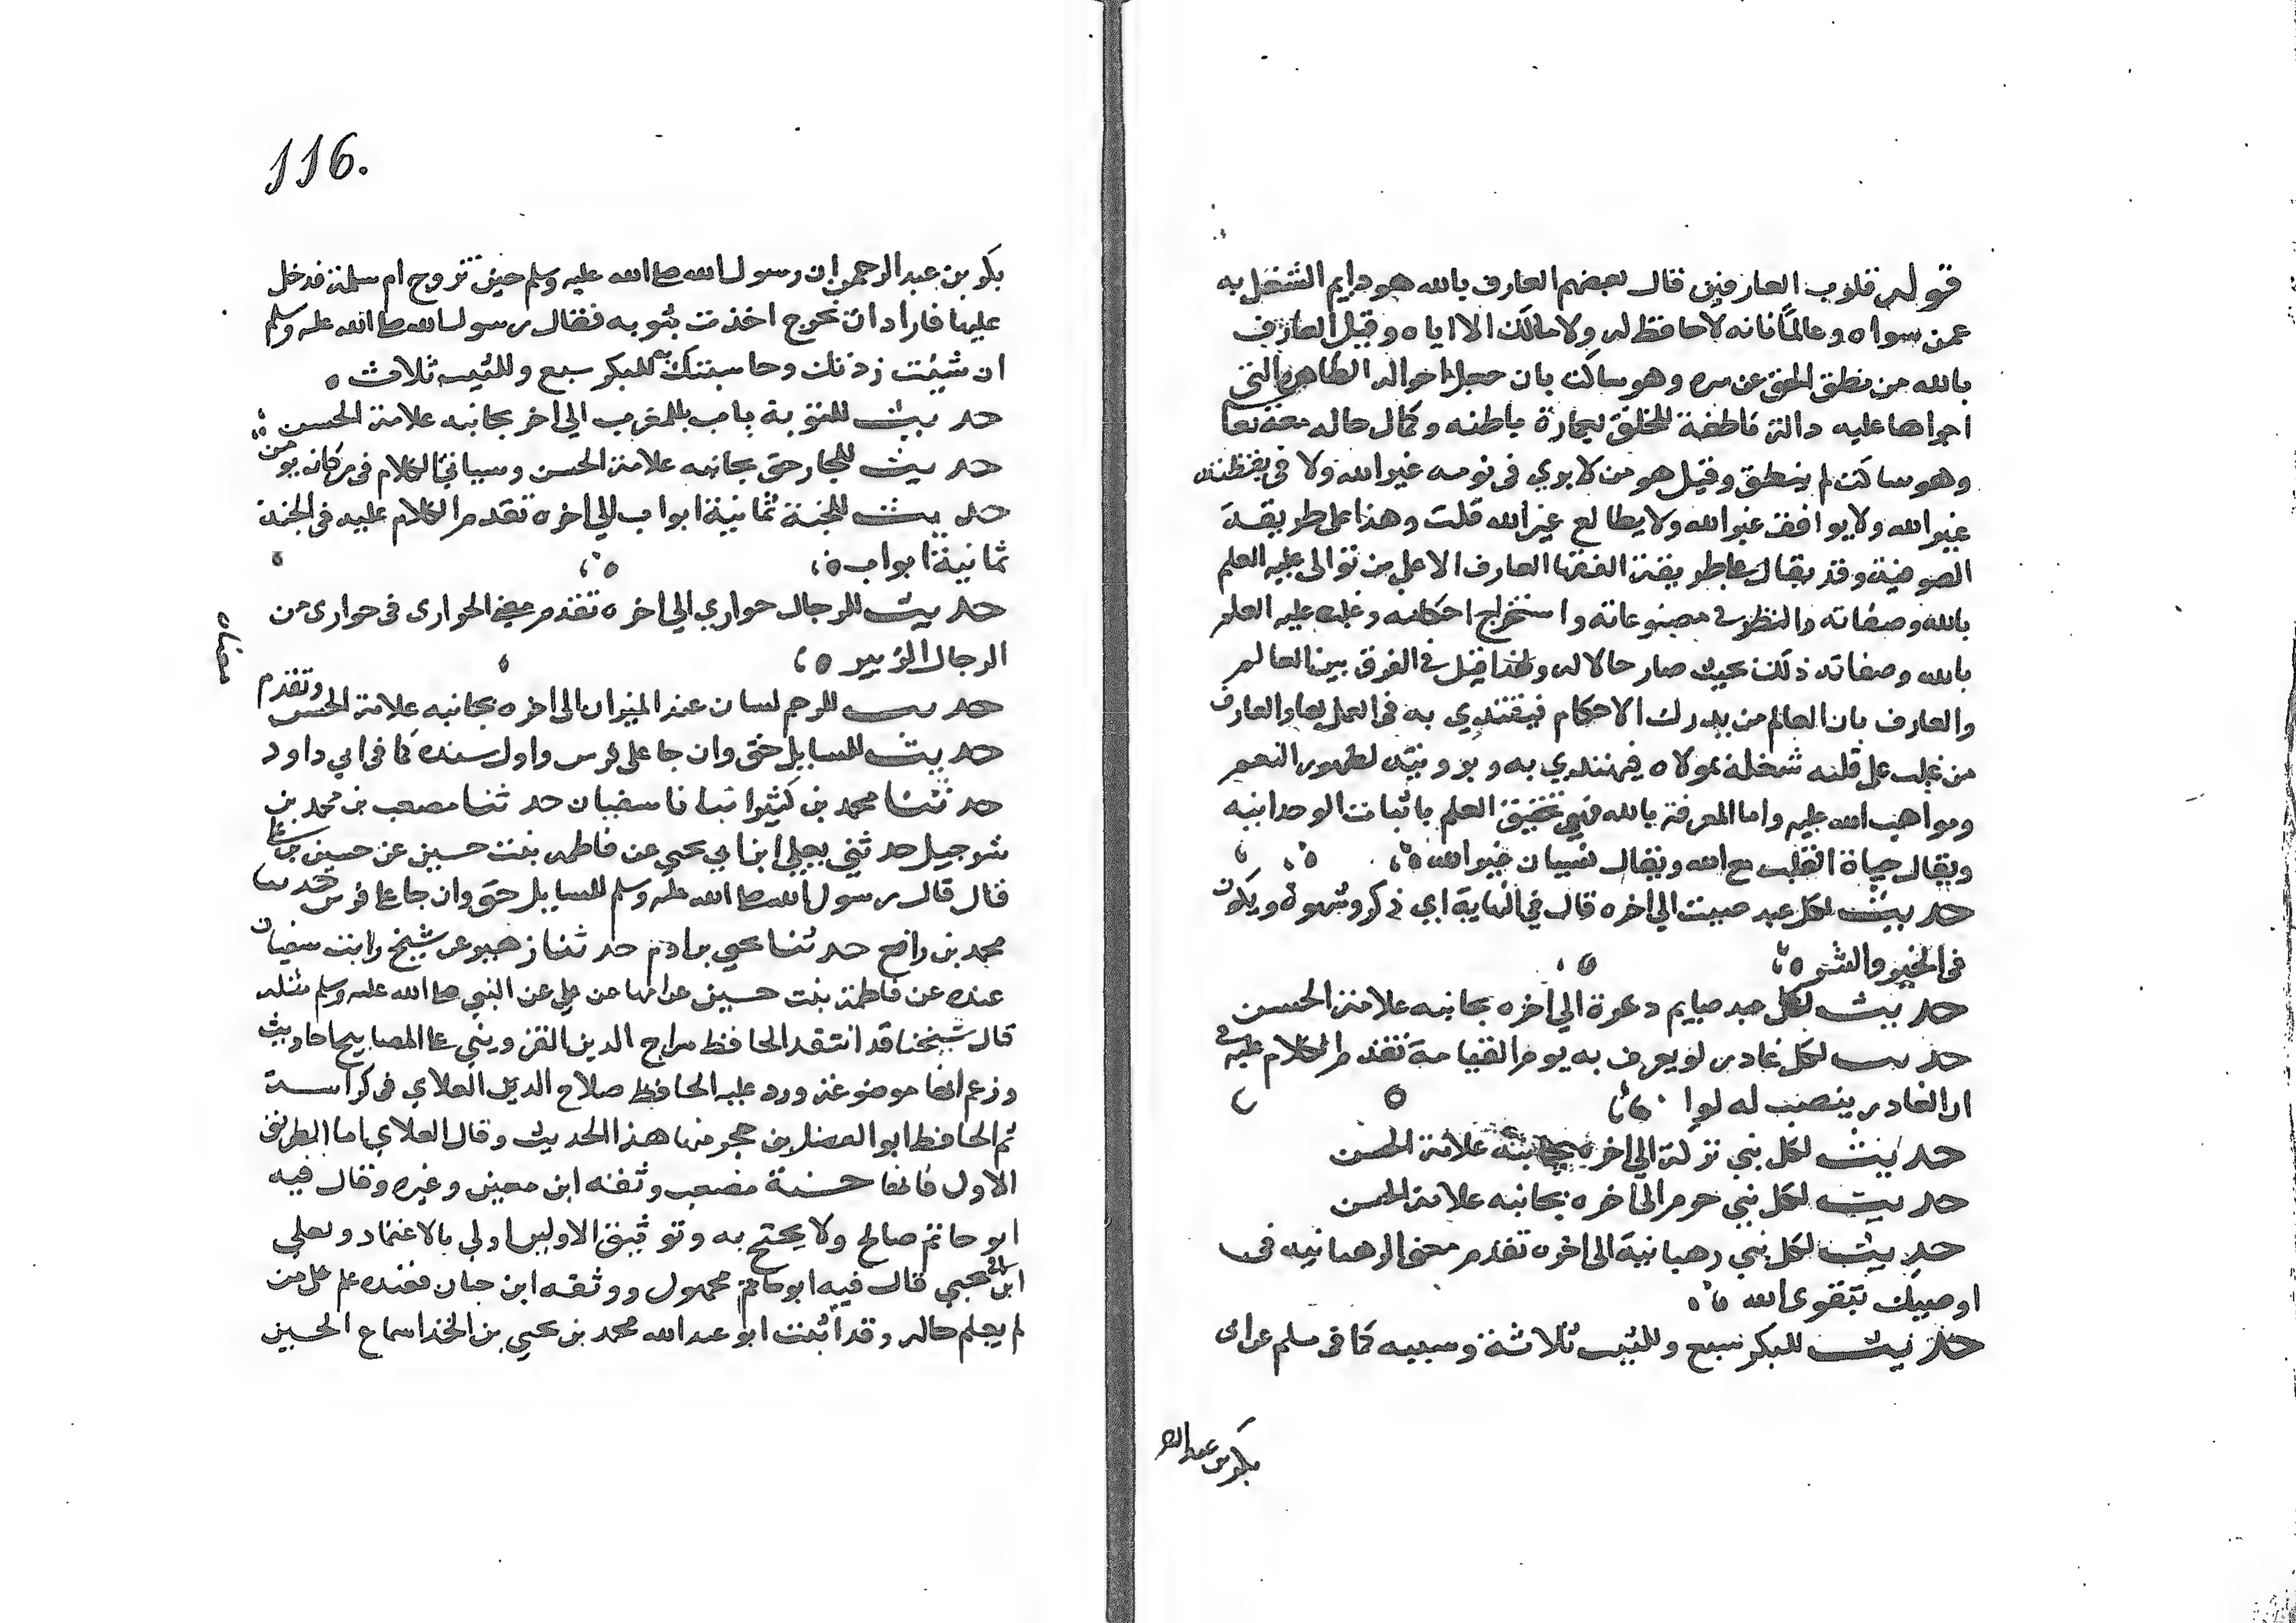 قوله قلوب العارفين قال بعضهم العارف بالله هو دايم الشغل به
عمن سواه وعالما فانه لا حافظ له ولا مالك الا اياه وقيل العارف
بالله من نطق الحق عن سره وهو ساكت بان جعل احواله الظاهرة التي
اجراها عليه دالة ناطقة للخلق باطنه وكمال حاله معه تعا
وهو ساكت لم ينطق وقيل هو من لا يري في نومه غير الله ولا في يقظته
غير الله ولا يوافق غير الله ولا يطالع غير الله قلت وهذا على طريقة
الصوفية وقد يقال على طريقة الفقها العارف الاعلى من توالى عليه العلم
بالله وصفاته والنظر في مصنوعاته واستخراج احكامه وغلب عليه العلم
بالله وصفاته ذلك بحيث صار حالا له ولهذا قيل في الفرق بين العالم
والعارف بان العالم من يدرك الاحكام فيقتدي به في العمل بها والعارف
من غلب على قلبه شغله بمولاه فيهتدي به وبرويته لظهور النعم
ومواهب الله عليه واما المعرفة بالله فهي تحقيق العلم باثبات الوحدانيه
ويقال حياة القلب مع الله ويقال نسيان غير الله
حديث لكل عبد صيت الى اخره قال في النهاية اي ذكر وشهرة ويكون
في الخير والشر
حديث لكل عبد صايم دعوة الى اخره بجانبه علامة الحسن
حديث لكل غادر لوا يعرف به يوم القيامة تقدم الكلام عليه في
ان الغادر ينصب له لوا
حديث لكل نبي تركة الى اخره بجانبه علامة الحسن
حديث لكل نبي حرم الى اخره بجانبه علامة الحسن
حديث لكل نبي رهبانية الى اخره تقدم معنى الرهبانيه في
اوصيك بتقوى الله
حديث للبكر سبع وللثيب ثلاثة وسببه كما في مسلم عن ابى
بكر بن عبد الر
116.
بكر بن عبد الرحمن ان رسول الله صلى الله عليه وسلم حين تزوج ام سلمة فدخل
عليها فاراد ان يخرج اخذت بثوبه فقال رسول الله صلى الله عليه وسلم
ان شيت زدتك وحاسبتك به للبكر سبع وللثيب ثلاث
حديث للتوبة باب بالمغرب الى اخر بجانبه علامة الحسن
حديث للجار حق بجانبه علامة الحسن وسياتي الكلام في من كان يومن
حديث للجنة ثمانية ابواب الى اخره تقدم الكلام عليه في الجنة
ثمانية ابواب
حديث للرجال حواري الى اخره تقدم معنى الحوارى في حوارى من
الرجال الزبير
معناه
حديث للرحم لسان عند الميزان الى اخره بجانبه علامة الحسن وتقدم
حديث للسايل حق وان جا على فرس واول سنده كما في ابي داود
حدثنا محمد بن كثير انبانا سفيان حدثنا مصعب بن محمد بن
شرحبيل حدثني يعلى ابن ابي يحيى عن فاطمه بنت حسين عن حسين بن علي
قال قال رسول الله صلى الله عليه وسلم للسايل حق وان جا على فرس حدثنا
محمد بن رافع حدثنا يحيى بن ادم حدثنا زهير عن شيخ رايت سفيان
عنده عن فاطمة بنت حسين عن ابيها عن علي عن النبي صلى الله عليه وسلم مثله
قال شيخنا قد انتقد الحافظ سراج الدين القزويني على المصابيح احاديث
وزعم انها موضوعة ورد عليه الحافظ صلاح الدين العلاي في كراسة
ثم الحافظ ابو الفضل بن حجر منها هذا الحديث وقال العلاي اما الطريق
الاول فانها حسنة مصعب وثقه ابن معين وغيره وقال فيه
ابو حاتم صالح ولا يحتج به وتوثيق الاولين اولي بالاعتماد ويعلي
ابن ابي يحيي قال فيه ابو حاتم مجهول ووثقه ابن حبان فعنده علم على من
لم يعلم حاله وقد اثبت ابو عبد الله محمد بن يحيي بن الحذا سماع الحسين